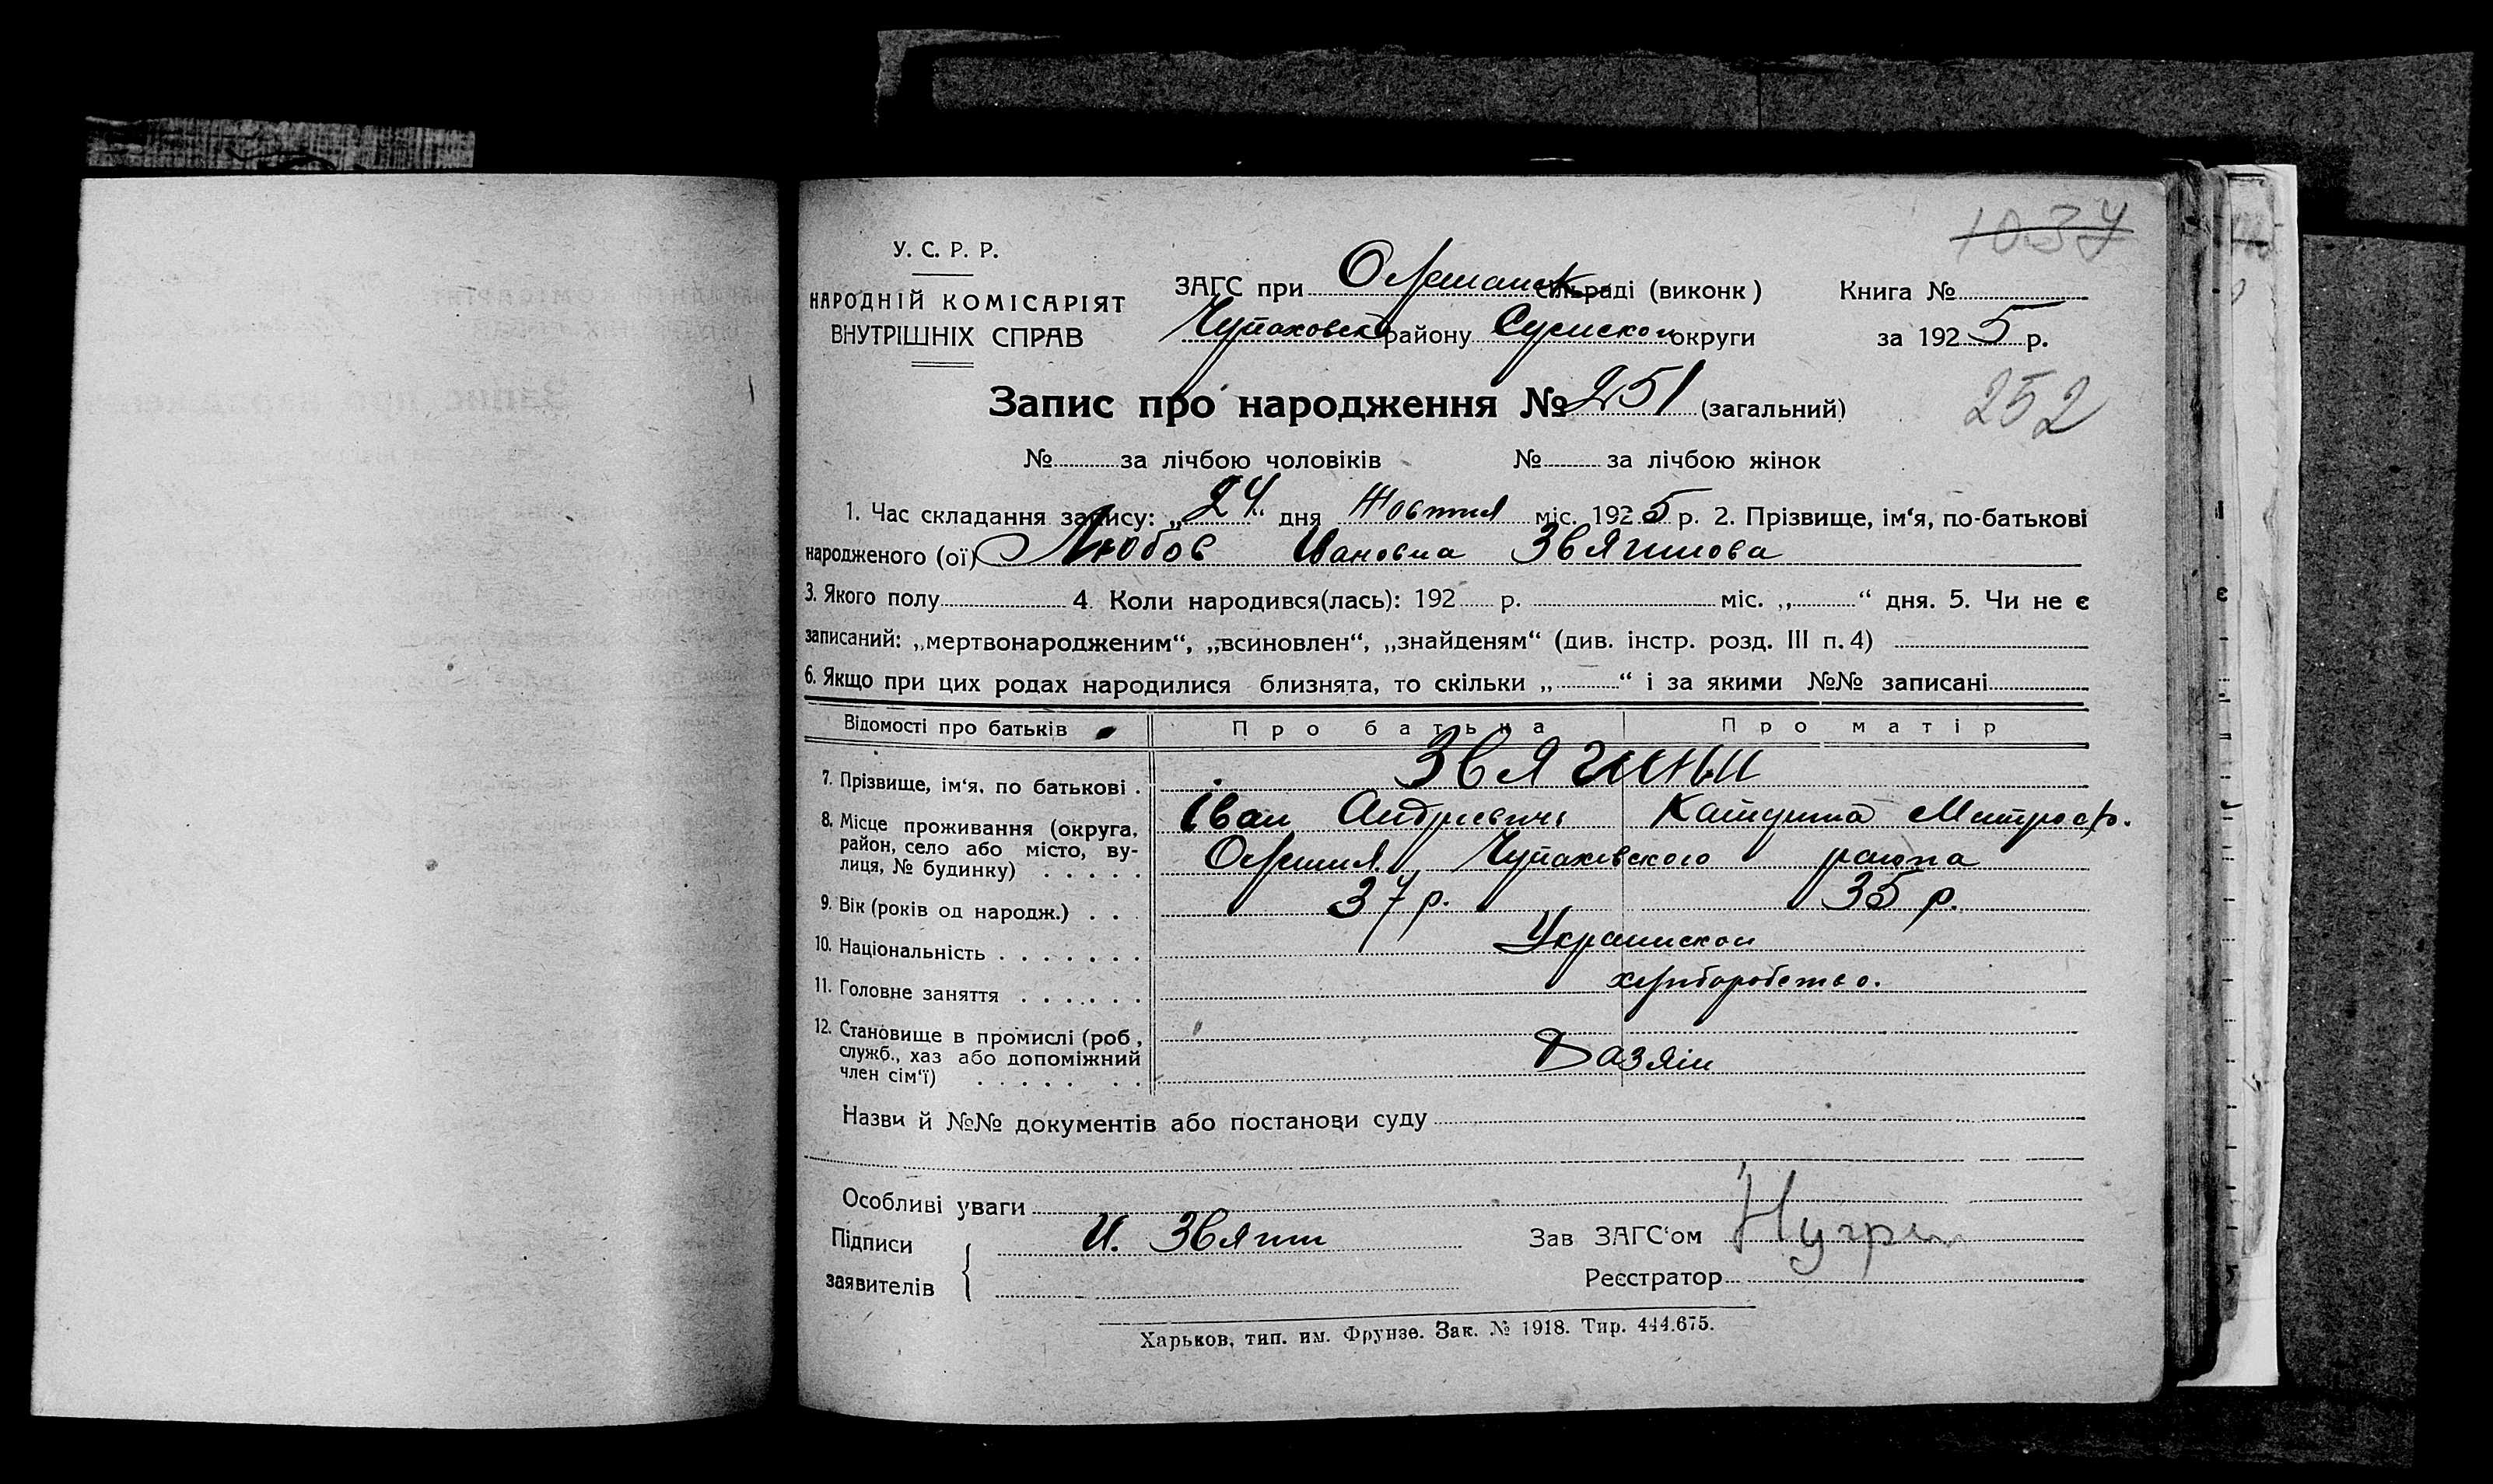 1037
У. С. Р. Р.
НАРОДНІЙ КОМІСАРІЯТ
ВНУТРІШНІХ СПРАВ
ЗАГС при Олешанск сільраді (виконк) Книга №
Чупаховск району Сумської округи за 1925 р.
Запис про народження № 251 (загальний)
252
№ за лічбою чоловіків № за лічбою жінок
1. Час складання запису: „24“ дня Жовтня міс. 1925 р. 2. Прізвище, ім‘я, по-батькові
народженого (ої) Любов Івановна Звягинова
3. Якого полу 4. Коли народився(лась): 192 р. міс. „ “ дня. 5. Чи не є
записаний: „мертвонародженим“, „всиновлен“, „знайденям“ (див. інстр. розд. III п. 4)
6. Якщо при цих родах народилися близнята, то скільки „ “ і за якими №№ записані
Відомості про батьків Про батька Про матір
7. Прізвище, ім‘я, по батькові . Звягини
Іван Андрієвичь Катерина Митроф.
8. Місце проживання (округа,
район, село або місто, ву-
лиця, № будинку) . . . . . Олешня Чупахівского района
9. Вік (років од народж.) . . . 37 р. 35 р.
10. Національність . . . . . . . Украинской
11. Головне заняття . . . . . . хліборобство.
12. Становище в промислі (роб,
служб., хаз або допоміжний
член сім‘ї) . . . . . . .
Назви й №№ документів або постанови суду
Особливі уваги
Підписи И. Звягин Зав ЗАГС‘ом
заявителів Реєстратор
Харьков, тип. им. Фрунзе. Зак. № 1918. Тир. 444.675.